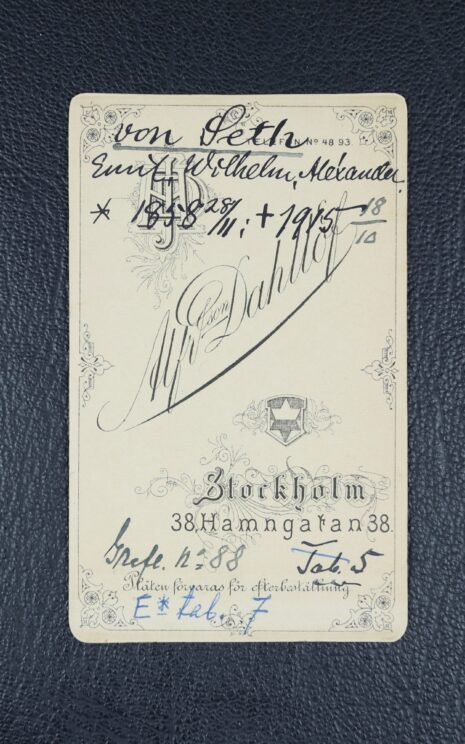 von Seth
TELEFON Nº 48 93.
Emil, Wilhelm, Alexander.
* 1858 28/11; + 1915 18/10
Alfr. Dahllöf
Stockholm
38. Hamngatan 38.
Grefl. nº 88 Tab. 5
Plåten förvaras för efterbeställning
E* tab. 7